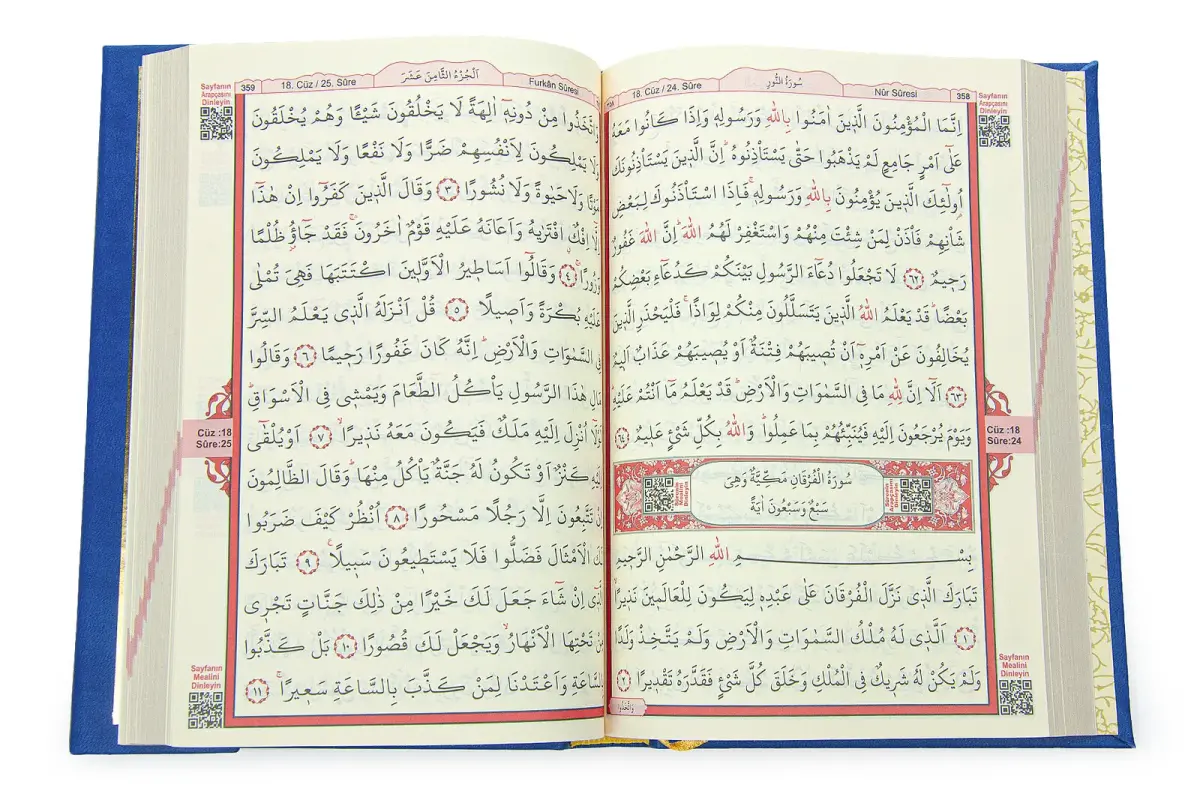 358
Nûr Sûresi
سُورَةُ النُّورِ
18. Cüz / 24. Sûre
Sayfanın
Arapçasını
Dinleyin
اِنَّمَا الْمُؤْمِنُونَ الَّذ۪ينَ اٰمَنُوا بِاللّٰهِ وَرَسُولِه۪ وَاِذَا كَانُوا مَعَهُ
عَلٰٓى اَمْرٍ جَامِعٍ لَمْ يَذْهَبُوا حَتّٰى يَسْتَأْذِنُوهُۜ اِنَّ الَّذ۪ينَ يَسْتَأْذِنُونَكَ
اُو۬لٰٓئِكَ الَّذ۪ينَ يُؤْمِنُونَ بِاللّٰهِ وَرَسُولِه۪ۚ فَاِذَا اسْتَأْذَنُوكَ لِبَعْضِ
شَأْنِهِمْ فَأْذَنْ لِمَنْ شِئْتَ مِنْهُمْ وَاسْتَغْفِرْ لَهُمُ اللّٰهَۜ اِنَّ اللّٰهَ غَفُورٌ
رَح۪يمٌ ﴿٦٢﴾ لَا تَجْعَلُوا دُعَٓاءَ الرَّسُولِ بَيْنَكُمْ كَدُعَٓاءِ بَعْضِكُمْ
بَعْضًاۜ قَدْ يَعْلَمُ اللّٰهُ الَّذ۪ينَ يَتَسَلَّلُونَ مِنْكُمْ لِوَاذًاۚ فَلْيَحْذَرِ الَّذ۪ينَ
يُخَالِفُونَ عَنْ اَمْرِه۪ٓ اَنْ تُص۪يبَهُمْ فِتْنَةٌ اَوْ يُص۪يبَهُمْ عَذَابٌ اَل۪يمٌ
﴿٦٣﴾ اَلَٓا اِنَّ لِلّٰهِ مَا فِي السَّمٰوَاتِ وَالْاَرْضِۜ قَدْ يَعْلَمُ مَٓا اَنْتُمْ عَلَيْهِۜ
وَيَوْمَ يُرْجَعُونَ اِلَيْهِ فَيُنَبِّئُهُمْ بِمَا عَمِلُواۜ وَاللّٰهُ بِكُلِّ شَيْءٍ عَل۪يمٌ ﴿٦٤﴾
Cüz :18
Sûre:24
سُورَةُ الْفُرْقَانِ مَكِّيَّةٌ وَهِيَ
سَبْعٌ وَسَبْعُونَ اٰيَةً
بِسْمِ اللّٰهِ الرَّحْمٰنِ الرَّح۪يمِ
تَبَارَكَ الَّذ۪ي نَزَّلَ الْفُرْقَانَ عَلٰى عَبْدِه۪ لِيَكُونَ لِلْعَالَم۪ينَ نَذ۪يرًاۙ
﴿١﴾ اَلَّذ۪ي لَهُ مُلْكُ السَّمٰوَاتِ وَالْاَرْضِ وَلَمْ يَتَّخِذْ وَلَدًا
وَلَمْ يَكُنْ لَهُ شَر۪يكٌ فِي الْمُلْكِ وَخَلَقَ كُلَّ شَيْءٍ فَقَدَّرَهُ تَقْد۪يرًا ﴿٢﴾
وَاتَّخَذُوا
Sayfanın
Mealini
Dinleyin
Furkân Sûresi
اَلْجُزْءُ الثَّامِنَ عَشَرَ
18. Cüz / 25. Sûre
359
Sayfanın
Arapçasını
Dinleyin
وَاتَّخَذُوا مِنْ دُونِه۪ٓ اٰلِهَةً لَا يَخْلُقُونَ شَيْـًٔا وَهُمْ يُخْلَقُونَ
وَلَا يَمْلِكُونَ لِاَنْفُسِهِمْ ضَرًّا وَلَا نَفْعًا وَلَا يَمْلِكُونَ
مَوْتًا وَلَا حَيٰوةً وَلَا نُشُورًا ﴿٣﴾ وَقَالَ الَّذ۪ينَ كَفَرُٓوا اِنْ هٰذَٓا
اِلَّٓا اِفْكٌۨ افْتَرٰيهُ وَاَعَانَهُ عَلَيْهِ قَوْمٌ اٰخَرُونَۚ فَقَدْ جَٓاؤُ۫ ظُلْمًا
وَزُورًاۚ ﴿٤﴾ وَقَالُٓوا اَسَاط۪يرُ الْاَوَّل۪ينَ اكْتَتَبَهَا فَهِيَ تُمْلٰى
عَلَيْهِ بُكْرَةً وَاَص۪يلًا ﴿٥﴾ قُلْ اَنْزَلَهُ الَّذ۪ي يَعْلَمُ السِّرَّ
فِي السَّمٰوَاتِ وَالْاَرْضِۜ اِنَّهُ كَانَ غَفُورًا رَح۪يمًا ﴿٦﴾ وَقَالُوا
مَالِ هٰذَا الرَّسُولِ يَأْكُلُ الطَّعَامَ وَيَمْش۪ي فِي الْاَسْوَاقِۜ
لَوْلَٓا اُنْزِلَ اِلَيْهِ مَلَكٌ فَيَكُونَ مَعَهُ نَذ۪يرًاۙ ﴿٧﴾ اَوْ يُلْقٰٓى
اِلَيْهِ كَنْزٌ اَوْ تَكُونُ لَهُ جَنَّةٌ يَأْكُلُ مِنْهَاۜ وَقَالَ الظَّالِمُونَ
اِنْ تَتَّبِعُونَ اِلَّا رَجُلًا مَسْحُورًا ﴿٨﴾ اُنْظُرْ كَيْفَ ضَرَبُوا
لَكَ الْاَمْثَالَ فَضَلُّوا فَلَا يَسْتَط۪يعُونَ سَب۪يلًا۟ ﴿٩﴾ تَبَارَكَ
الَّذ۪ٓي اِنْ شَٓاءَ جَعَلَ لَكَ خَيْرًا مِنْ ذٰلِكَ جَنَّاتٍ تَجْر۪ي
مِنْ تَحْتِهَا الْاَنْهَارُۙ وَيَجْعَلْ لَكَ قُصُورًا ﴿١٠﴾ بَلْ كَذَّبُوا
بِالسَّاعَةِ وَاَعْتَدْنَا لِمَنْ كَذَّبَ بِالسَّاعَةِ سَع۪يرًاۚ ﴿١١﴾
Cüz :18
Sûre:25
Sayfanın
Mealini
Dinleyin